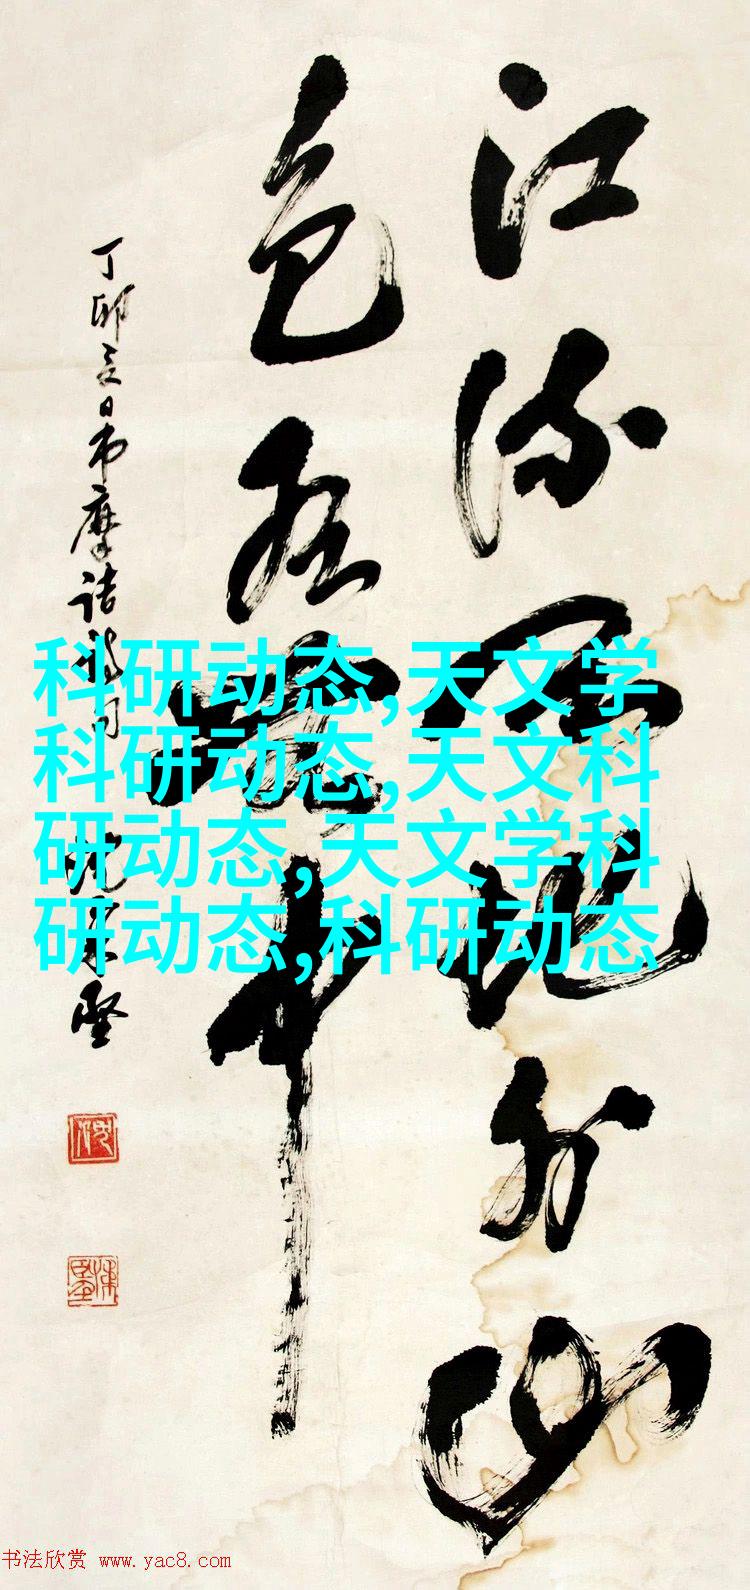 江流天地外山
色有無中
丁卯夏日書摩詰詩句
科研动态,天文学
科研动态,天文科
研动态,天文学科
研动态,科研动态
书法欣赏 www.yac8.com